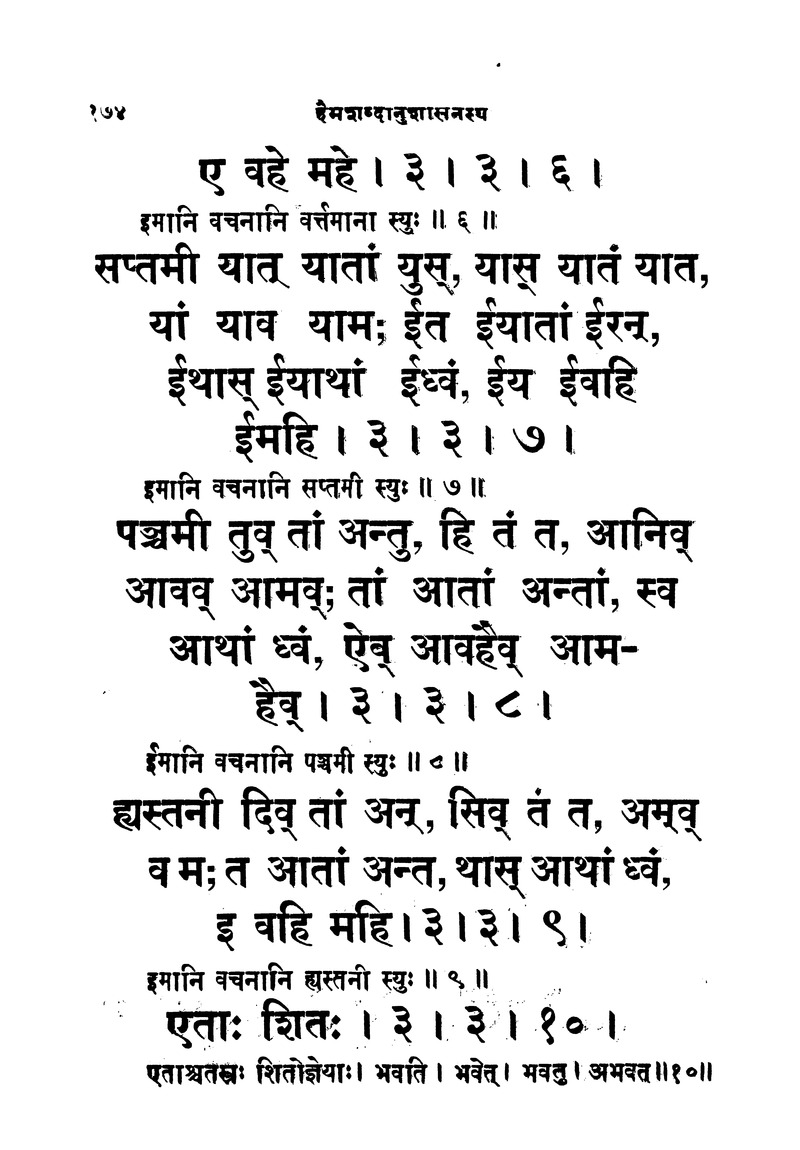 १७४ हैमशब्दानुशासनस्य
ए वहे महे । ३ । ३ । ६ ।
इमानि वचनानि वर्त्तमाना स्युः ॥ ६ ॥
सप्तमी यात् यातां युस्, यास् यातं यात,
यां याव याम; ईत ईयातां ईरन्,
ईथास् ईयाथां ईध्वं, ईय ईवहि
ईमहि । ३ । ३ । ७ ।
इमानि वचनानि सप्तमी स्युः ॥ ७ ॥
पञ्चमी तुव् तां अन्तु, हि तं त, आनिव्
आवव् आमव्; तां आतां अन्तां, स्व
आथां ध्वं, ऐव् आवहैव् आम-
हैव् । ३ । ३ । ८ ।
ईमानि वचनानि पञ्चमी स्युः ॥ ८ ॥
ह्यस्तनी दिव् तां अन्, सिव् तं त, अम्व्
व म; त आतां अन्त, थास् आथां ध्वं,
इ वहि महि । ३ । ३ । ९ ।
इमानि वचनानि ह्यस्तनी स्युः ॥ ९ ॥
एताः शितः । ३ । ३ । १० ।
एताश्चतस्रः शितोज्ञेयाः । भवति । भवेत् । भवतु । अभवत् ॥१०॥